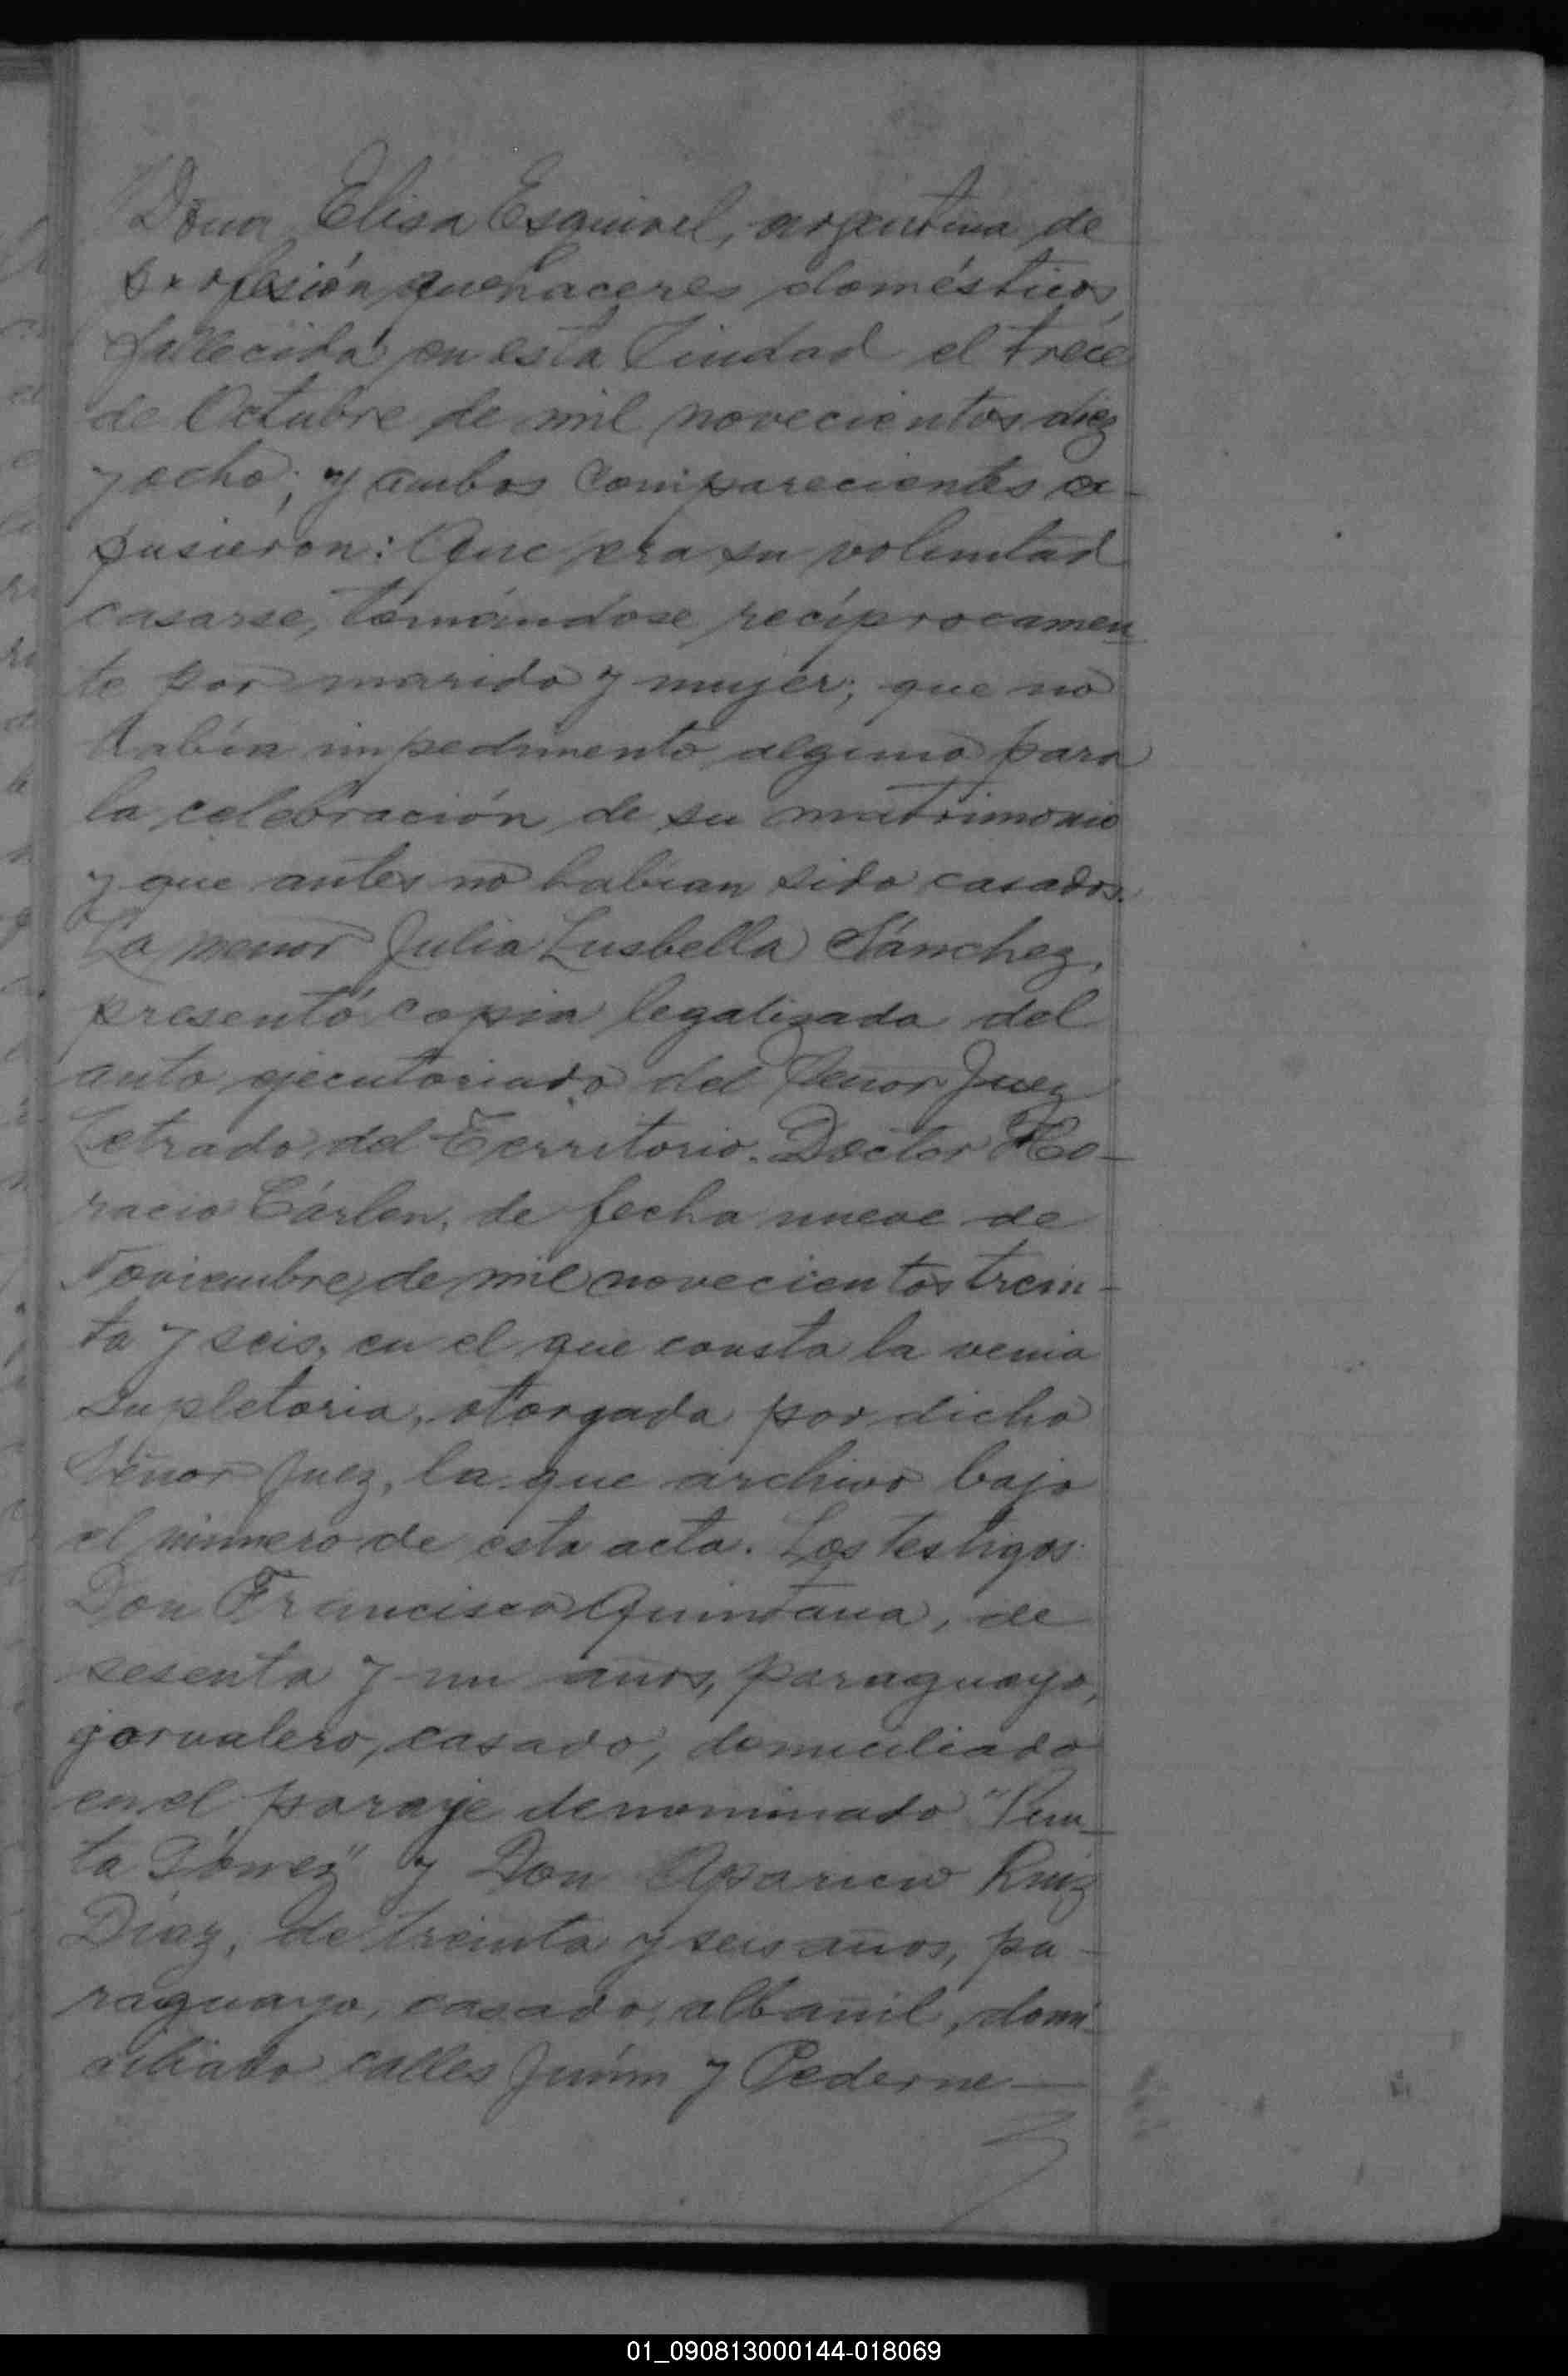 Doña Elisa Esquivel, argentina de
profesión quehaceres domésticos,
fallecida en esta Ciudad el trece
de Octubre de mil novecientos diez
y ocho; y ambos comparecientes ex-
pusieron: Que era su voluntad
casarse, tomándose recíprocamen
te por marido y mujer; que no
había impedimento alguno para
la celebración de su matrimonio
y que antes no habían sido casados.
La menor Julia Lusbella Sánchez,
presentó copia legalizada del
auto ejecutoriado del Señor Juez
Letrado del Territorio. Doctor Ho-
racio de fecha nueve de
Noviembre de mil novecientos trein-
ta y seis, en el que consta la venia
supletoria, otorgada por dicho
Señor Juez, la que archivo bajo
el número de esta acta. Los testigos
Don Francisco Quintana, de
sesenta y un años, paraguayo,
jornalero, casado, domiciliado
en el paraje denominado
y Don Aparicio Ruiz
Díaz, de treinta y seis años, pa-
raguayo, casado, albañil, domi-
ciliado calles Junín y Pederne-
01_090813000144-018069